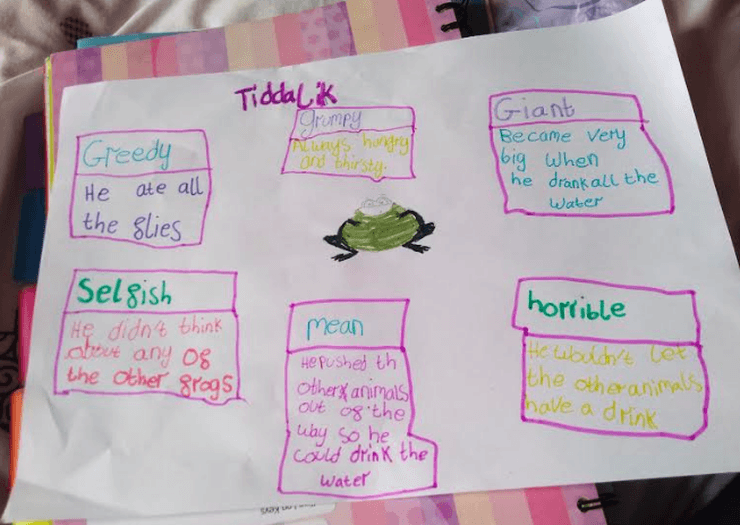 TiddaLik
Greedy
He ate all
the flies
Grumpy
Always hungry
and thirsty.
Giant
Became very
big when
he drank all the
water
Selfish
He didn't think
about any of
the other frogs
mean
He pushed th
other animals
out of the
way so he
could drink the
water
horrible
He wouldn't let
the other animals
have a drink